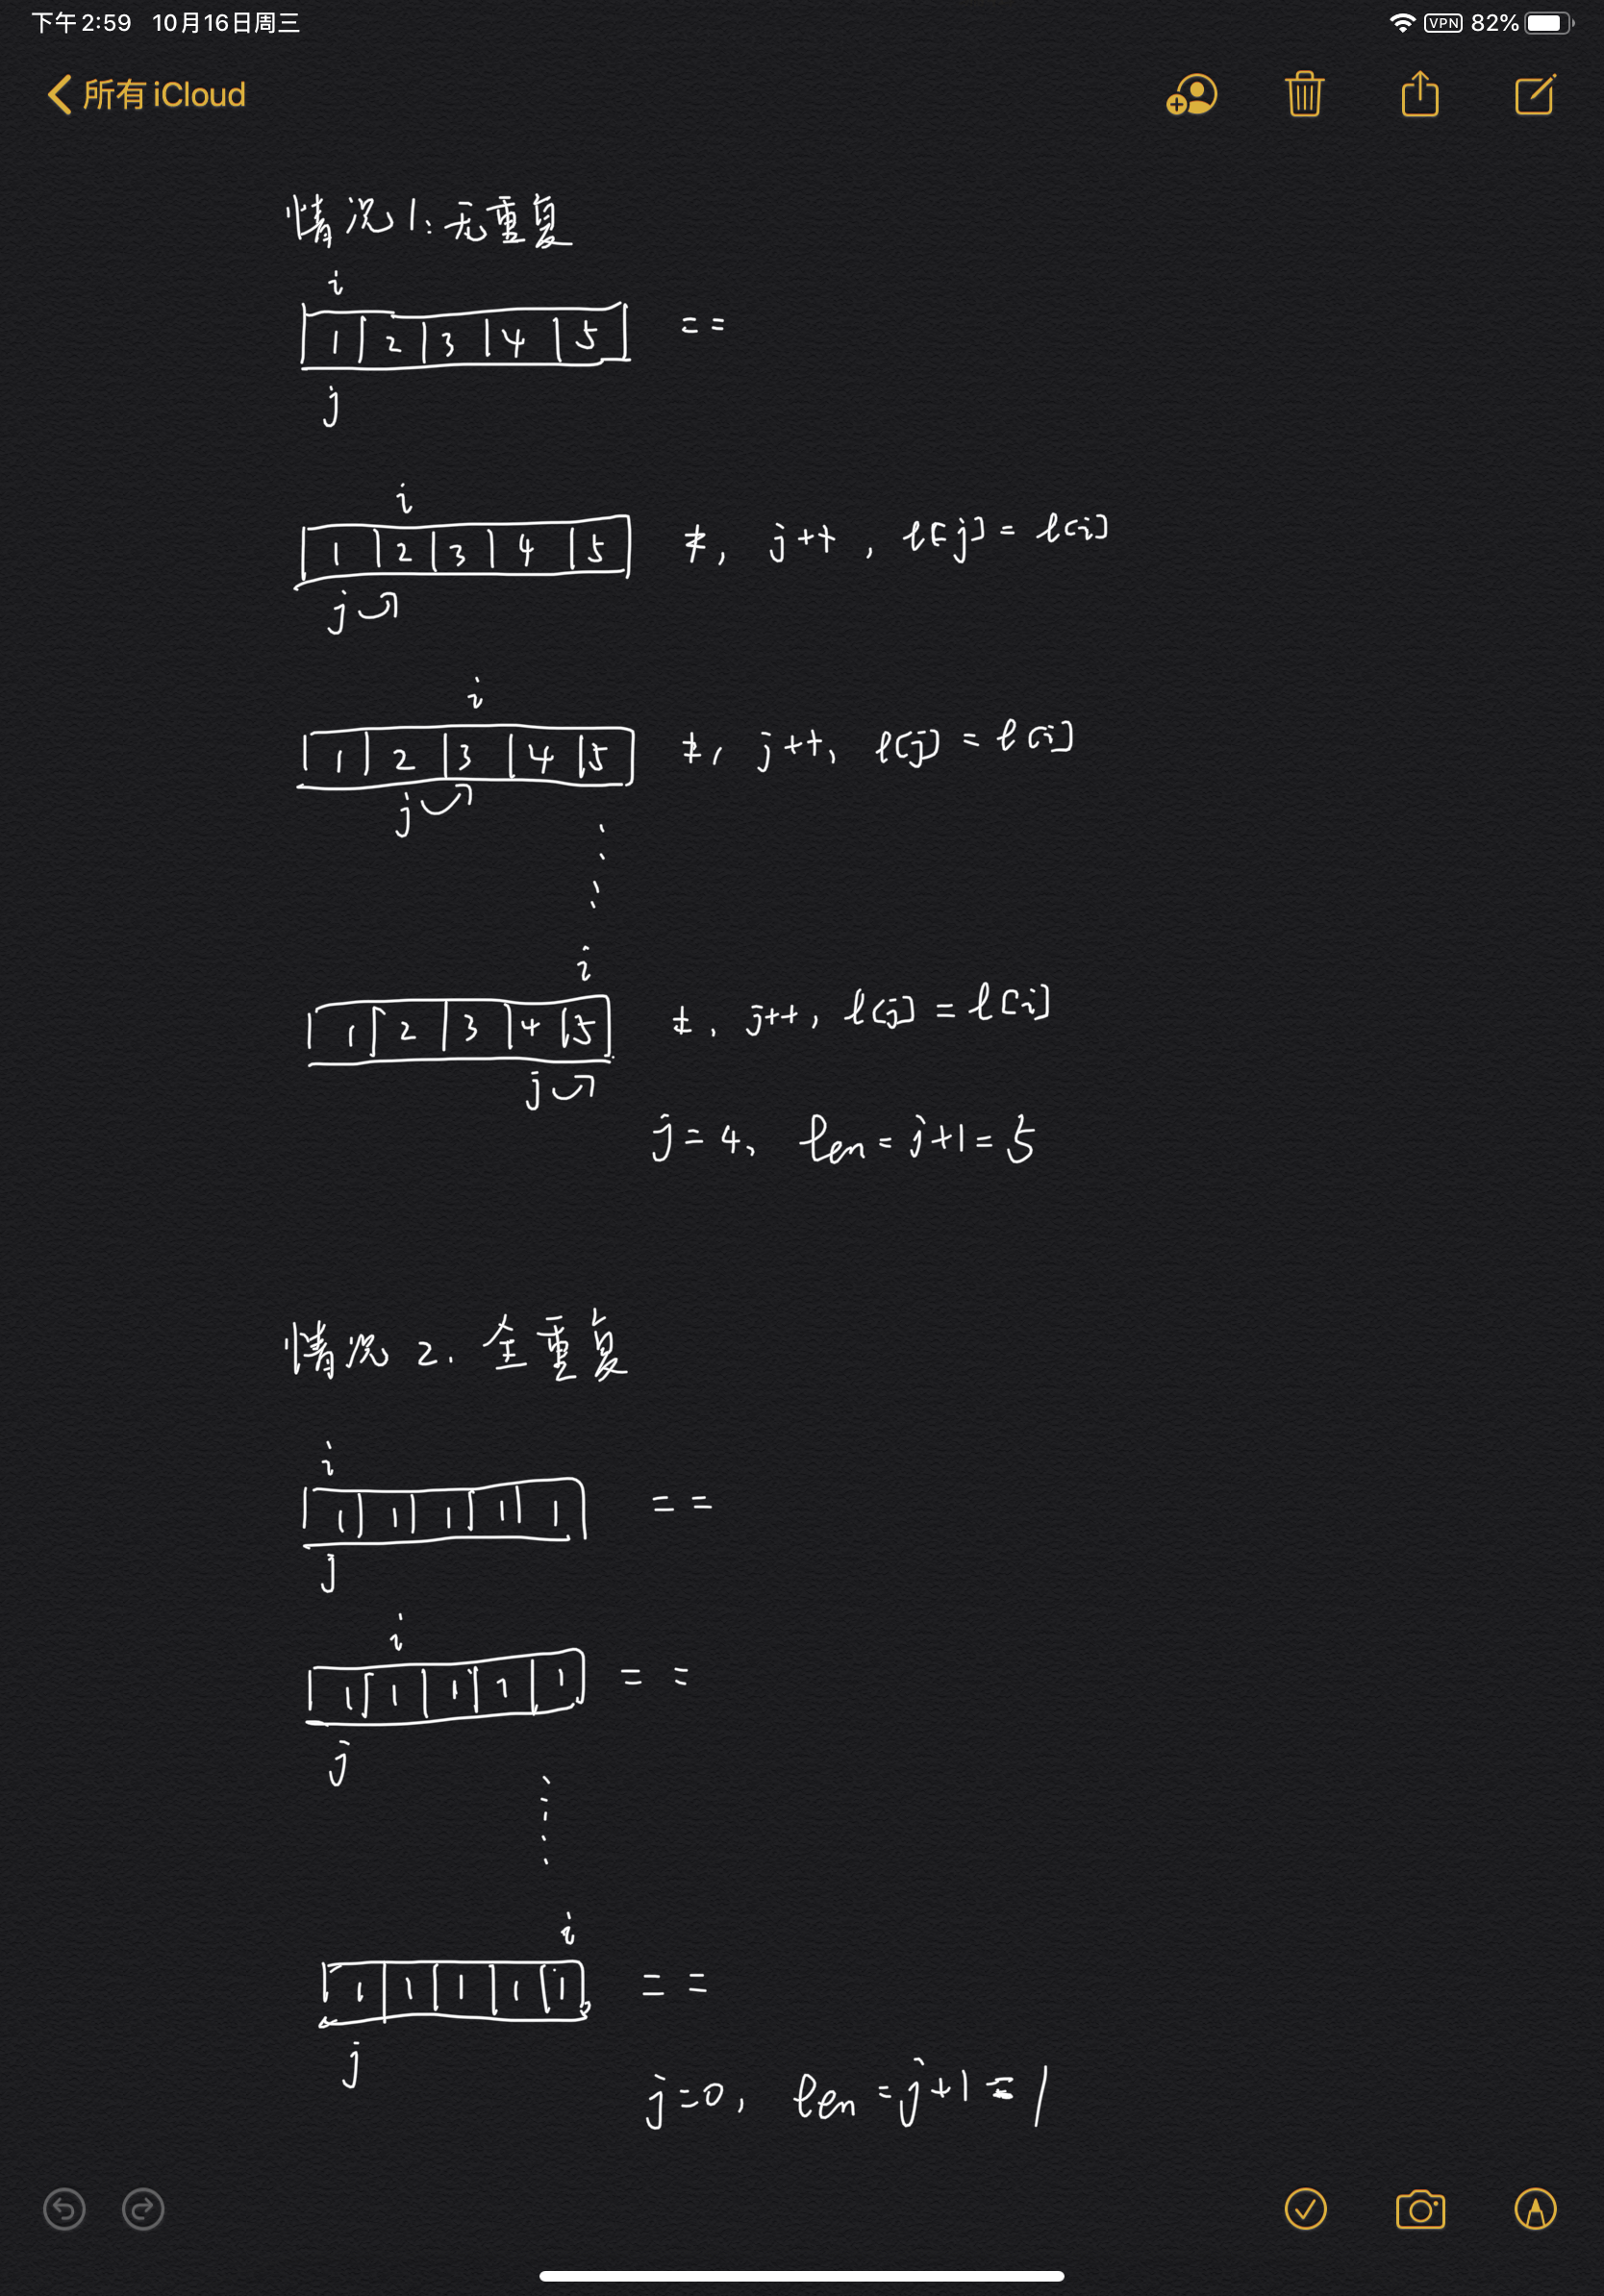 下午2:59 10月16日周三 VPN 82%
所有 iCloud
情况1:无重复
i
1 2 3 4 5 ==
j
i
1 2 3 4 5 ≠, j++, l[j] = l[i]
j
i
1 2 3 4 5 ≠, j++, l[j] = l[i]
j
i
1 2 3 4 5 ≠, j++, l[j] = l[i]
j
j=4, len = j+1 = 5
情况 2. 全重复
i
1 1 1 1 1 ==
j
i
1 1 1 1 1 ==
j
i
1 1 1 1 1 ==
j
j=0, len = j+1 = 1